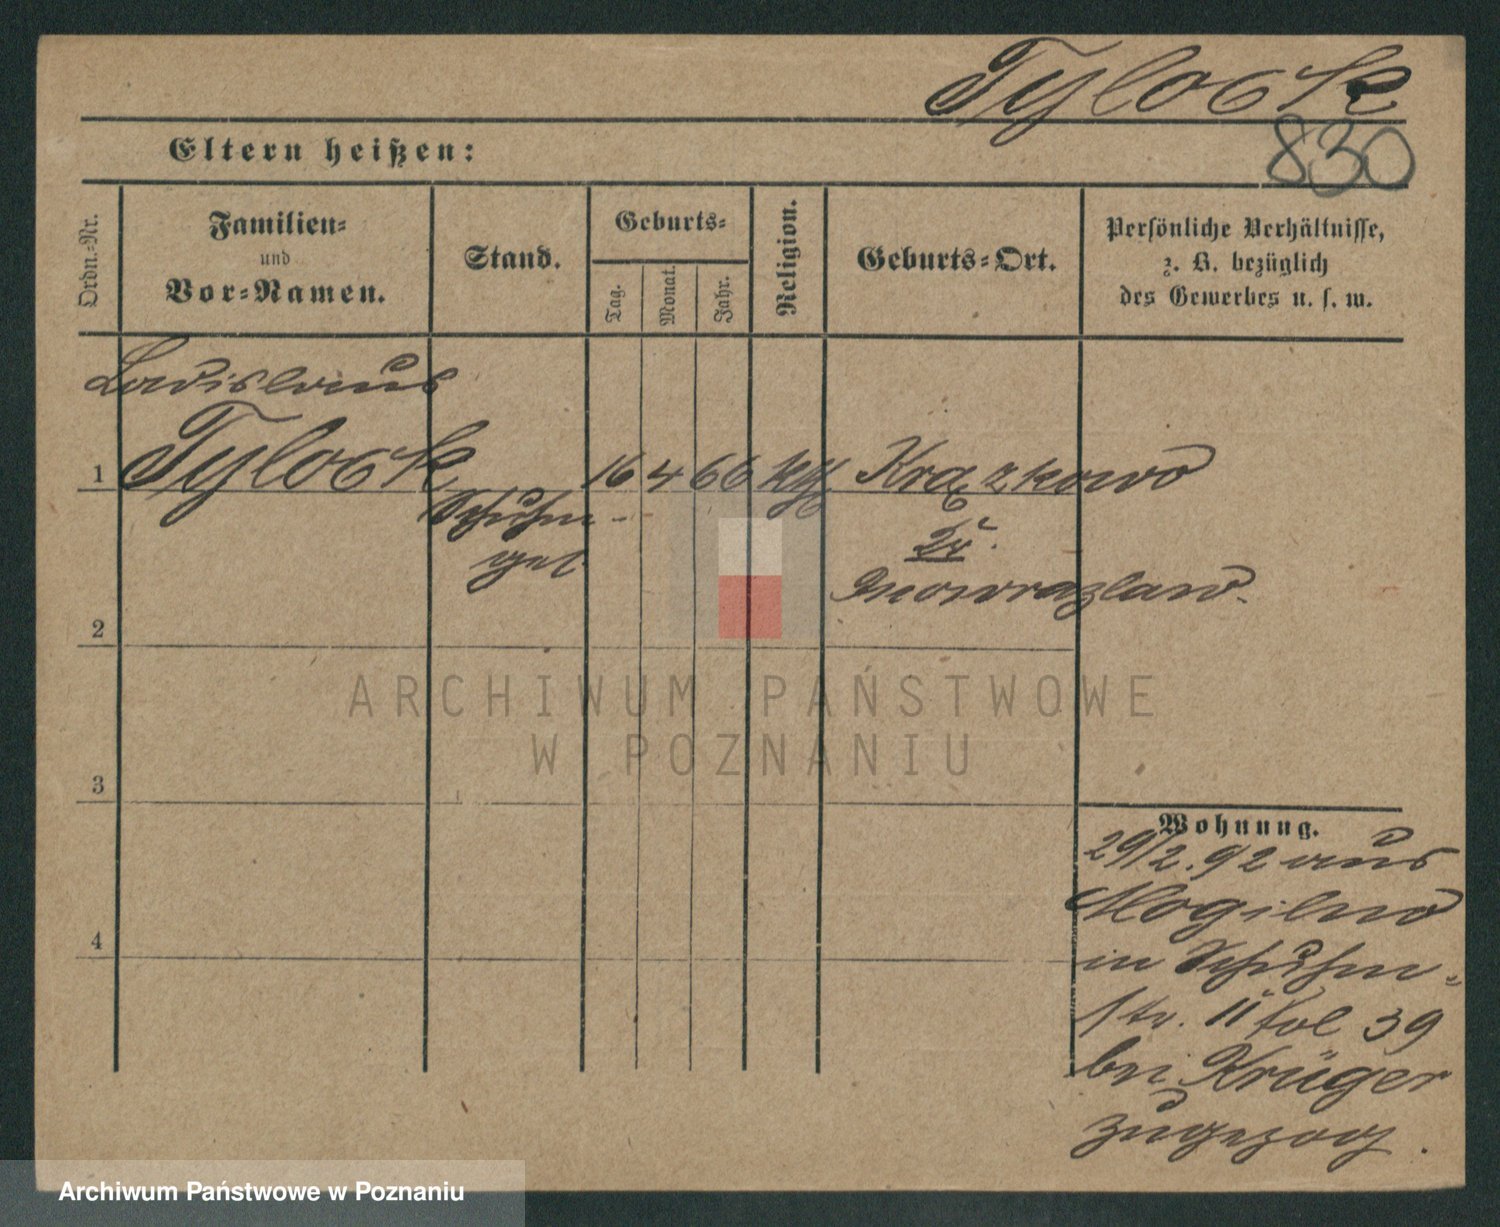 Tylock
830
Eltern heißen:
Ordn.-Nr.
Familien-
und
Vor-Namen.
Stand.
Geburts-
Tag.
Monat.
Jahr.
Religion.
Geburts-Ort.
Persönliche Verhältnisse,
z. B. bezüglich
des Gewerbes u. s. w.
Ladislaus
1 Tylock 16 4 66 kth Krązkowo
Schuhm-
gel
Kr.
Inowrazlaw.
2
ARCHIWUM PAŃSTWOWE
W POZNANIU
3
4
Wohnung.
29/2.92 aus
Mogilno
in Schuhm-
str. 11 fol 39
bei Krüger
zugezog.
Archiwum Państwowe w Poznaniu